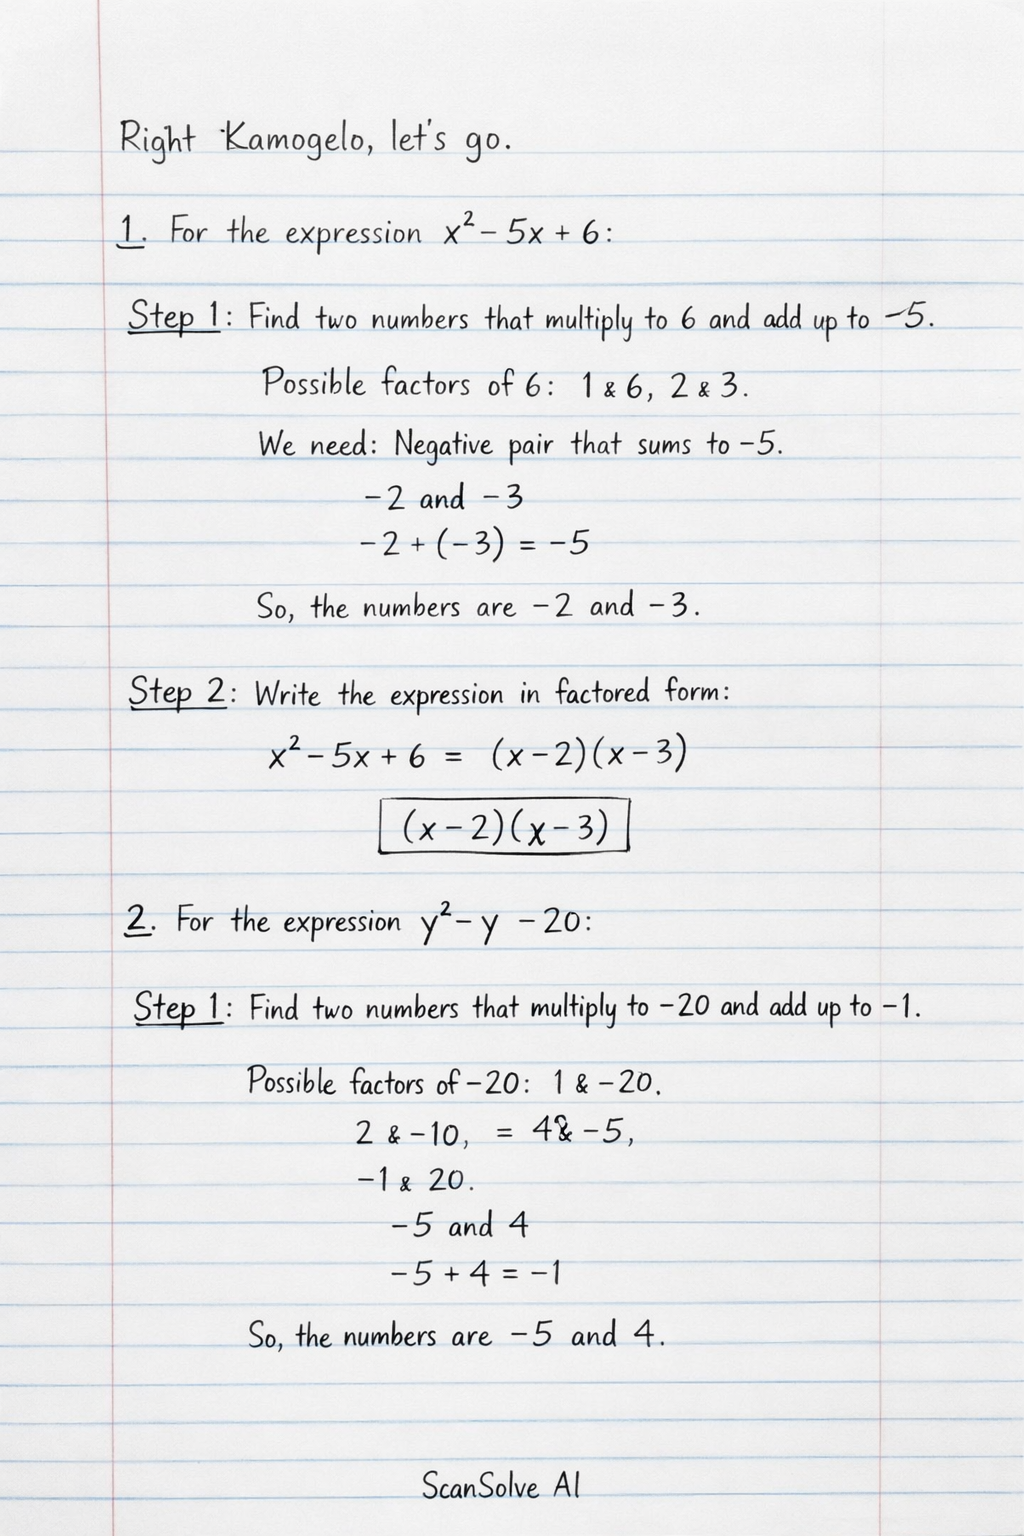 Right Kamogelo, let's go.
1. For the expression x² - 5x + 6:
Step 1: Find two numbers that multiply to 6 and add up to -5.
Possible factors of 6: 1 & 6, 2 & 3.
We need: Negative pair that sums to -5.
-2 and -3
-2 + (-3) = -5
So, the numbers are -2 and -3.
Step 2: Write the expression in factored form:
x² - 5x + 6 = (x - 2)(x - 3)
(x - 2)(x - 3)
2. For the expression y² - y - 20:
Step 1: Find two numbers that multiply to -20 and add up to -1.
Possible factors of -20: 1 & -20.
2 & -10, = 4 & -5,
-1 & 20.
-5 and 4
-5 + 4 = -1
So, the numbers are -5 and 4.
ScanSolve AI